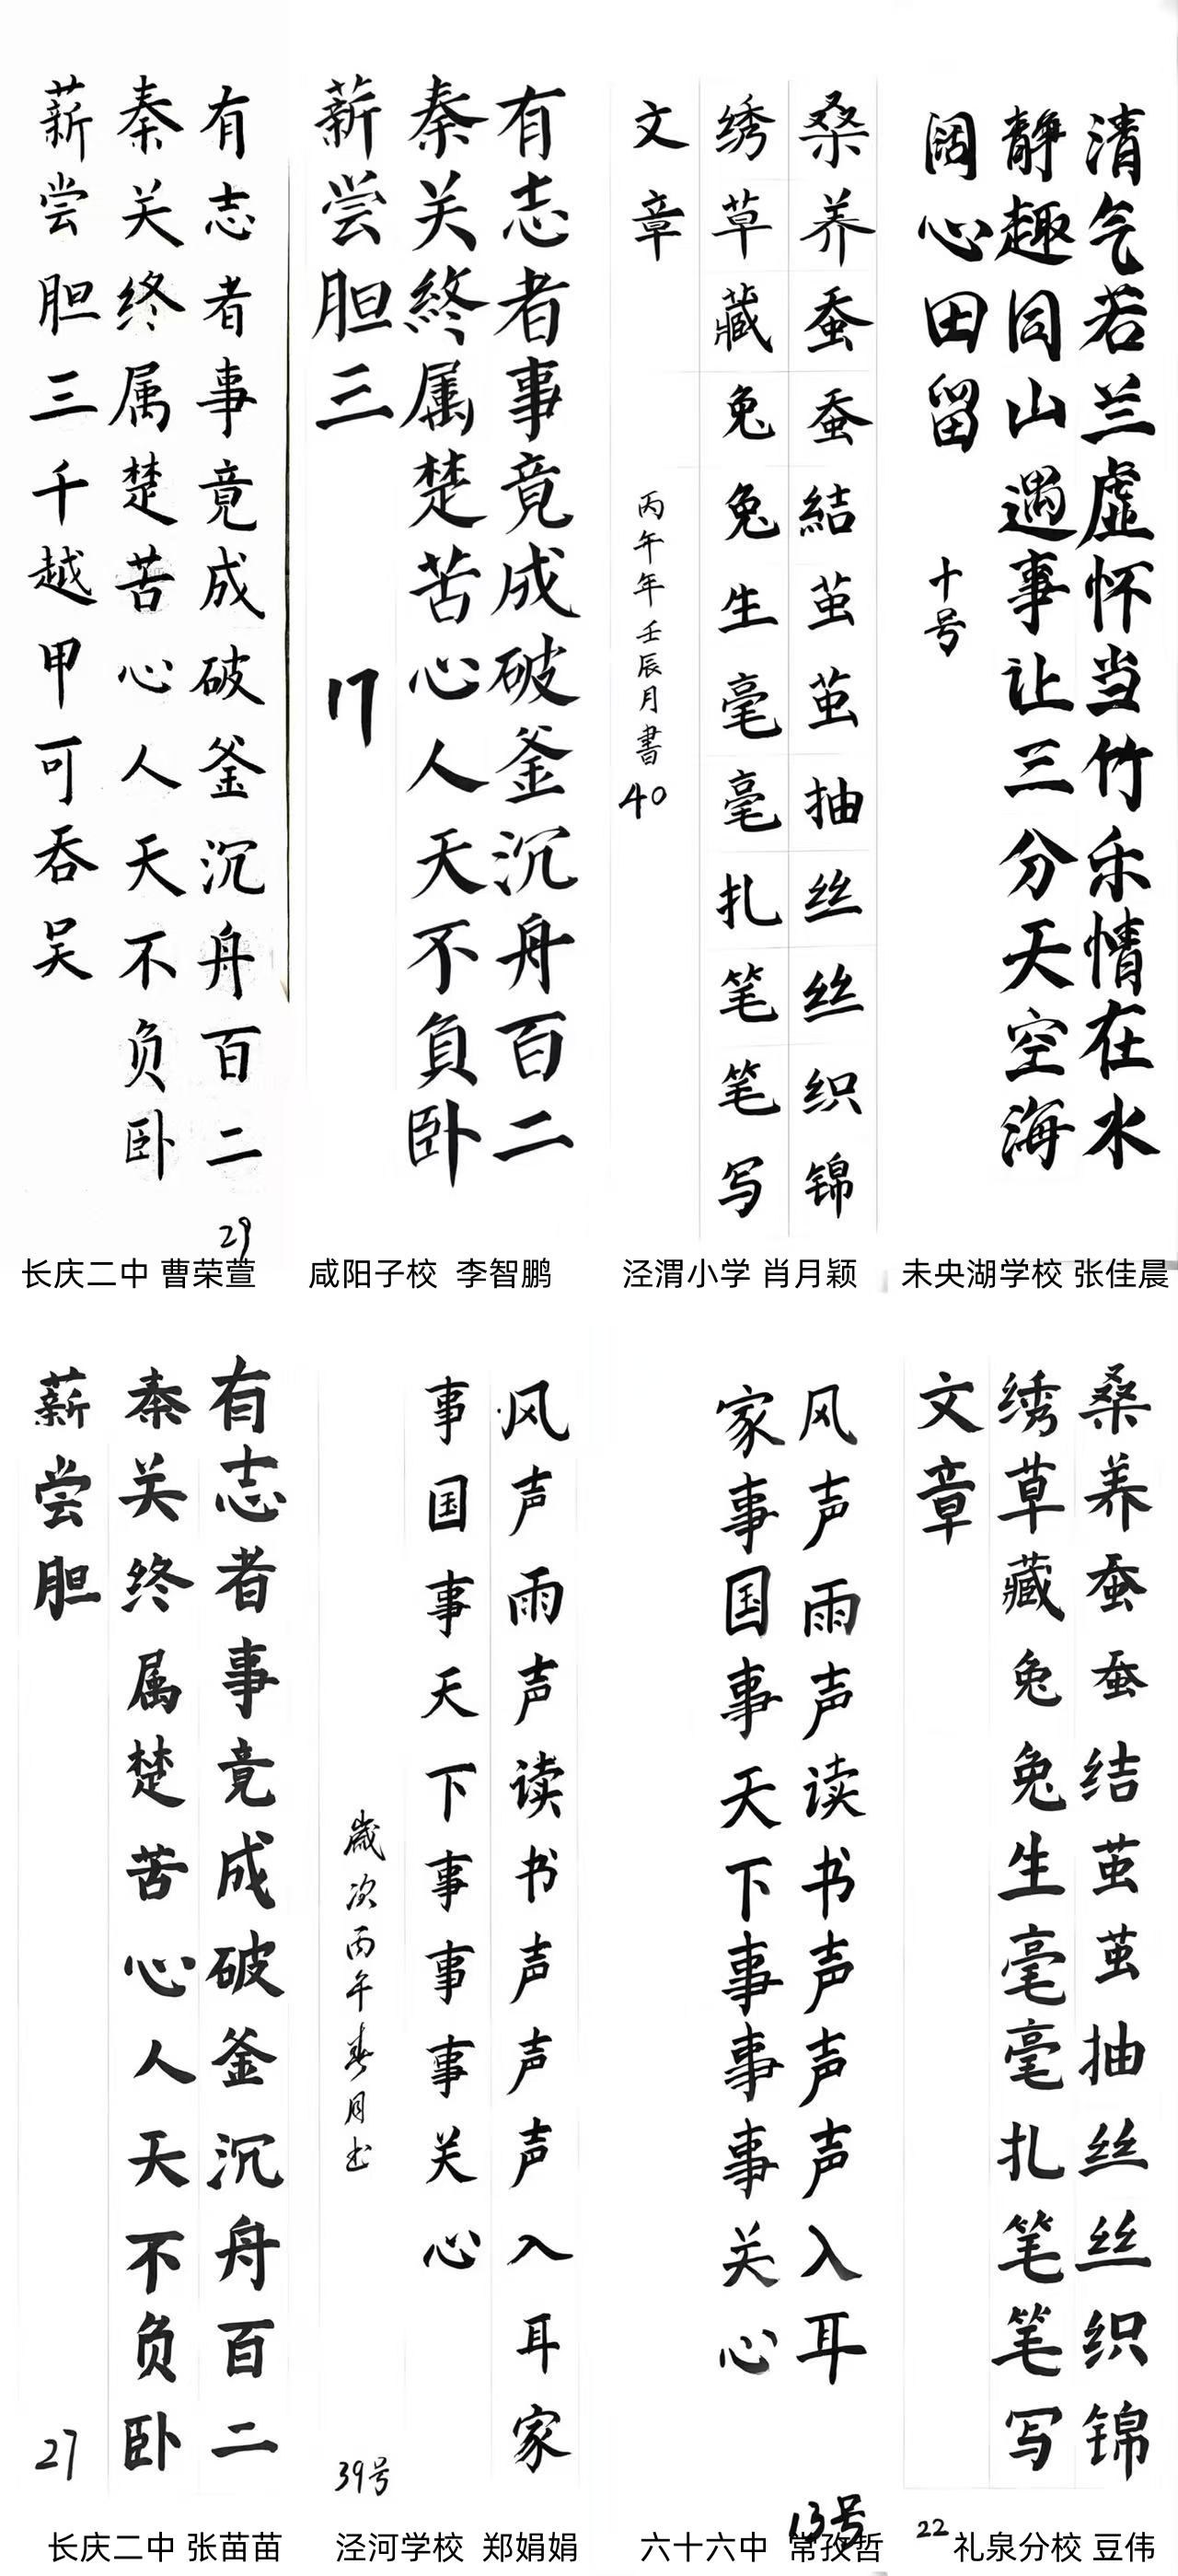 有志者事竟成破釜沉舟百二
秦关终属楚苦心人天不负卧
薪尝胆三千越甲可吞吴
29
长庆二中 曹荣萱
有志者事竟成破釜沉舟百二
秦关終属楚苦心人天不負卧
薪尝胆三
17
咸阳子校 李智鹏
桑养蚕蚕結茧茧抽丝丝织锦
绣草藏兔兔生毫毫扎笔笔写
文章
丙午年壬辰月書
40
泾渭小学 肖月颖
清气若兰虚怀当竹乐情在水
静趣同山遇事让三分天空海
阔心田留
十号
未央湖学校 张佳晨
有志者事竟成破釜沉舟百二
秦关终属楚苦心人天不负卧
薪尝胆
27
长庆二中 张苗苗
风声雨声读书声声声入耳家
事国事天下事事事关心
歲次丙午春月书
39号
泾河学校 郑娟娟
风声雨声读书声声声入耳
家事国事天下事事事关心
13号
六十六中 常孜哲
桑养蚕蚕结茧茧抽丝丝织锦
绣草藏兔兔生毫毫扎笔笔写
文章
22
礼泉分校 豆伟